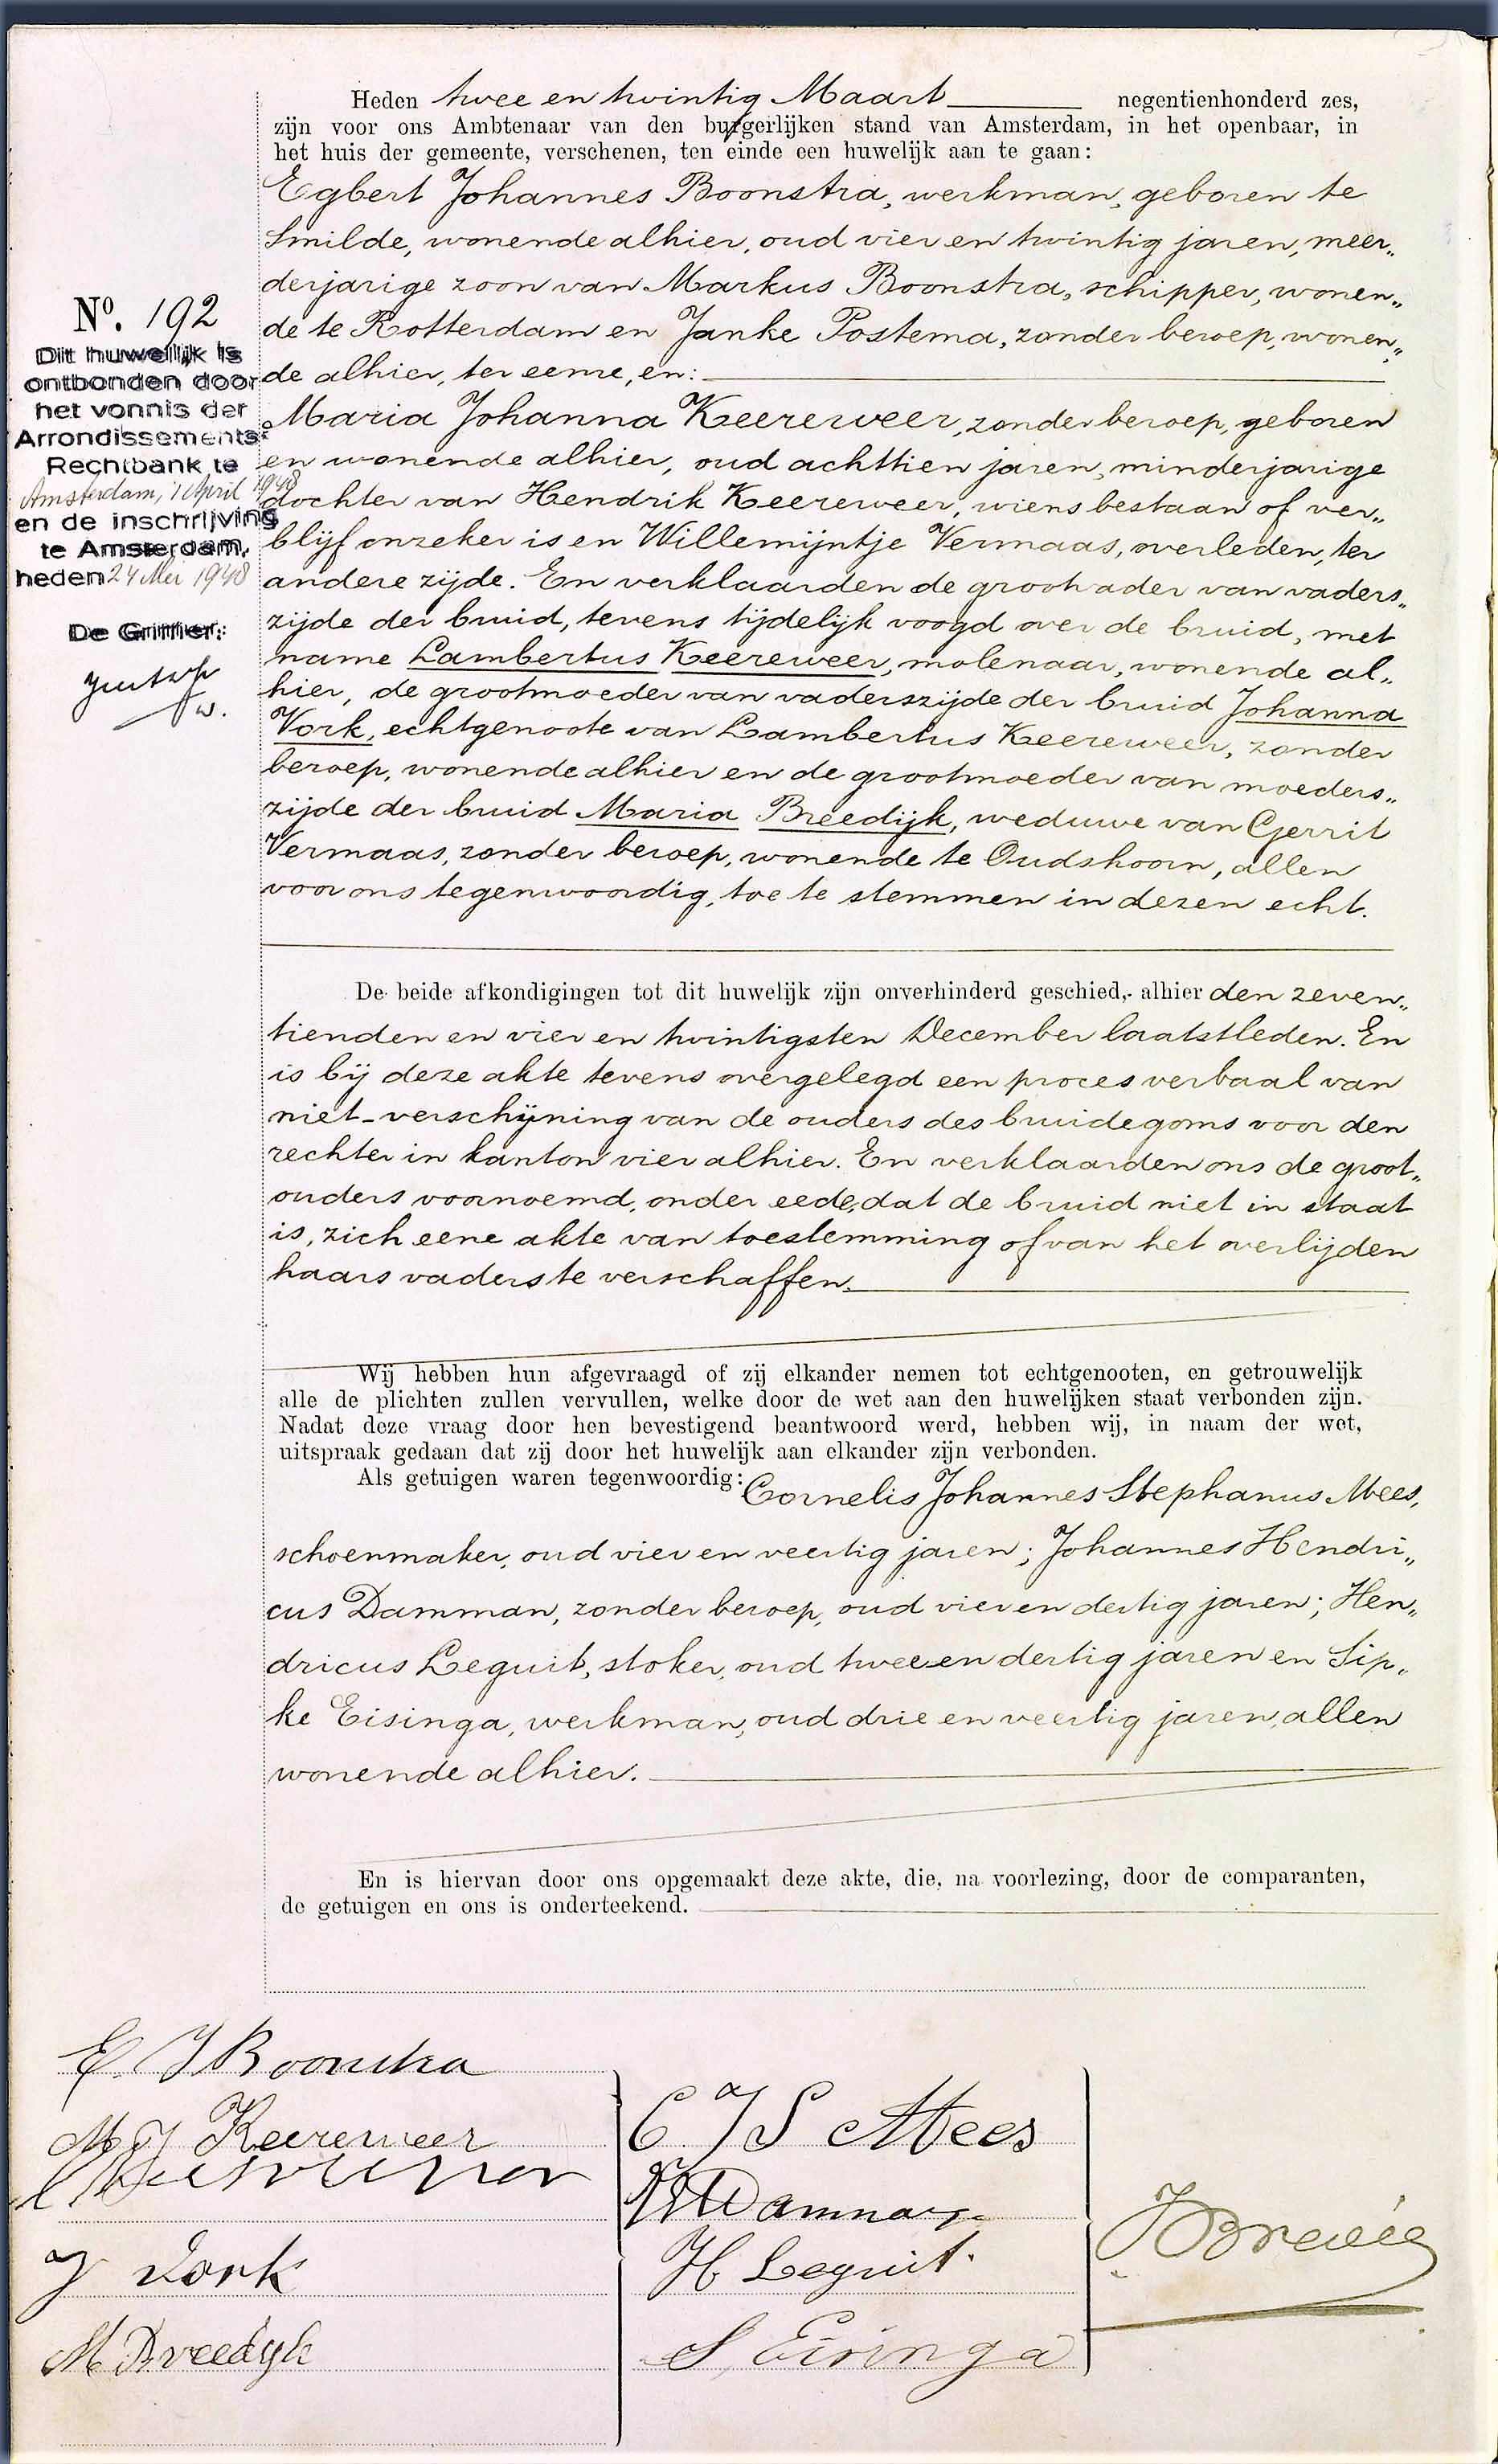 Heden twee en twintig Maart negentienhonderd zes,
zijn voor ons Ambtenaar van den burgerlijken stand van Amsterdam, in het openbaar, in
het huis der gemeente, verschenen, ten einde een huwelijk aan te gaan:
Egbert Johannes Boonstra, werkman, geboren te
Smilde, wonende alhier, oud vier en twintig jaren, meer„
derjarige zoon van Markus Boonstra, schipper, wonen„
de te Rotterdam en Janke Postema, zonder beroep, wonen„
de alhier, ter eene, en:
Maria Johanna Keereweer, zonder beroep, geboren
en wonende alhier, oud achttien jaren, minderjarige
dochter van Hendrik Keereweer, wiens bestaan of ver„
blijf onzeker is en Willemijntje Vermaas, overleden, ter
andere zijde. En verklaarden de grootvader van vaders„
zijde der bruid, tevens tijdelijk voogd over de bruid, met
name Lambertus Keereweer, molenaar, wonende al„
hier, de grootmoeder van vaderszijde der bruid Johanna
Vork, echtgenoote van Lambertus Keereweer, zonder
beroep, wonende alhier en de grootmoeder van moeders„
zijde der bruid Maria Breedijk, weduwe van Gerrit
Vermaas, zonder beroep, wonende te Oudshoorn, allen
voor ons tegenwoordig, toe te stemmen in dezen echt.
No. 192
Dit huwelijk is
ontbonden door
het vonnis der
Arrondissements-
Rechtbank te
Amsterdam, 1 April 1948
en de inschrijving
te Amsterdam,
heden 24 Mei 1948
De Griffier:
De beide afkondigingen tot dit huwelijk zijn onverhinderd geschied, alhier den zeven„
tienden en vier en twintigsten December laatstleden. En
is bij deze akte tevens overgelegd een proces verbaal van
niet-verschijning van de ouders des bruidegoms voor den
rechter in kanton vier alhier. En verklaarden ons de groot„
ouders voornoemd, onder eede, dat de bruid niet in staat
is, zich eene akte van toestemming of van het overlijden
haars vaders te verschaffen.
Wij hebben hun afgevraagd of zij elkander nemen tot echtgenooten, en getrouwelijk
alle de plichten zullen vervullen, welke door de wet aan den huwelijken staat verbonden zijn.
Nadat deze vraag door hen bevestigend beantwoord werd, hebben wij, in naam der wet,
uitspraak gedaan dat zij door het huwelijk aan elkander zijn verbonden.
Als getuigen waren tegenwoordig: Cornelis Johannes Stephanus Mees,
schoenmaker, oud vier en veertig jaren; Johannes Hendri„
cus Damman, zonder beroep, oud vier en dertig jaren; Hen„
dricus Leguit, stoker, oud twee en dertig jaren en Sip„
ke Eisinga, werkman, oud drie en veertig jaren, allen
wonende alhier.
En is hiervan door ons opgemaakt deze akte, die, na voorlezing, door de comparanten,
de getuigen en ons is onderteekend.
E. J Boonstra
M J Keereweer
J Vork
M Breedijk
C J S Mees
J H Damman
H Leguit
S, Eisinga